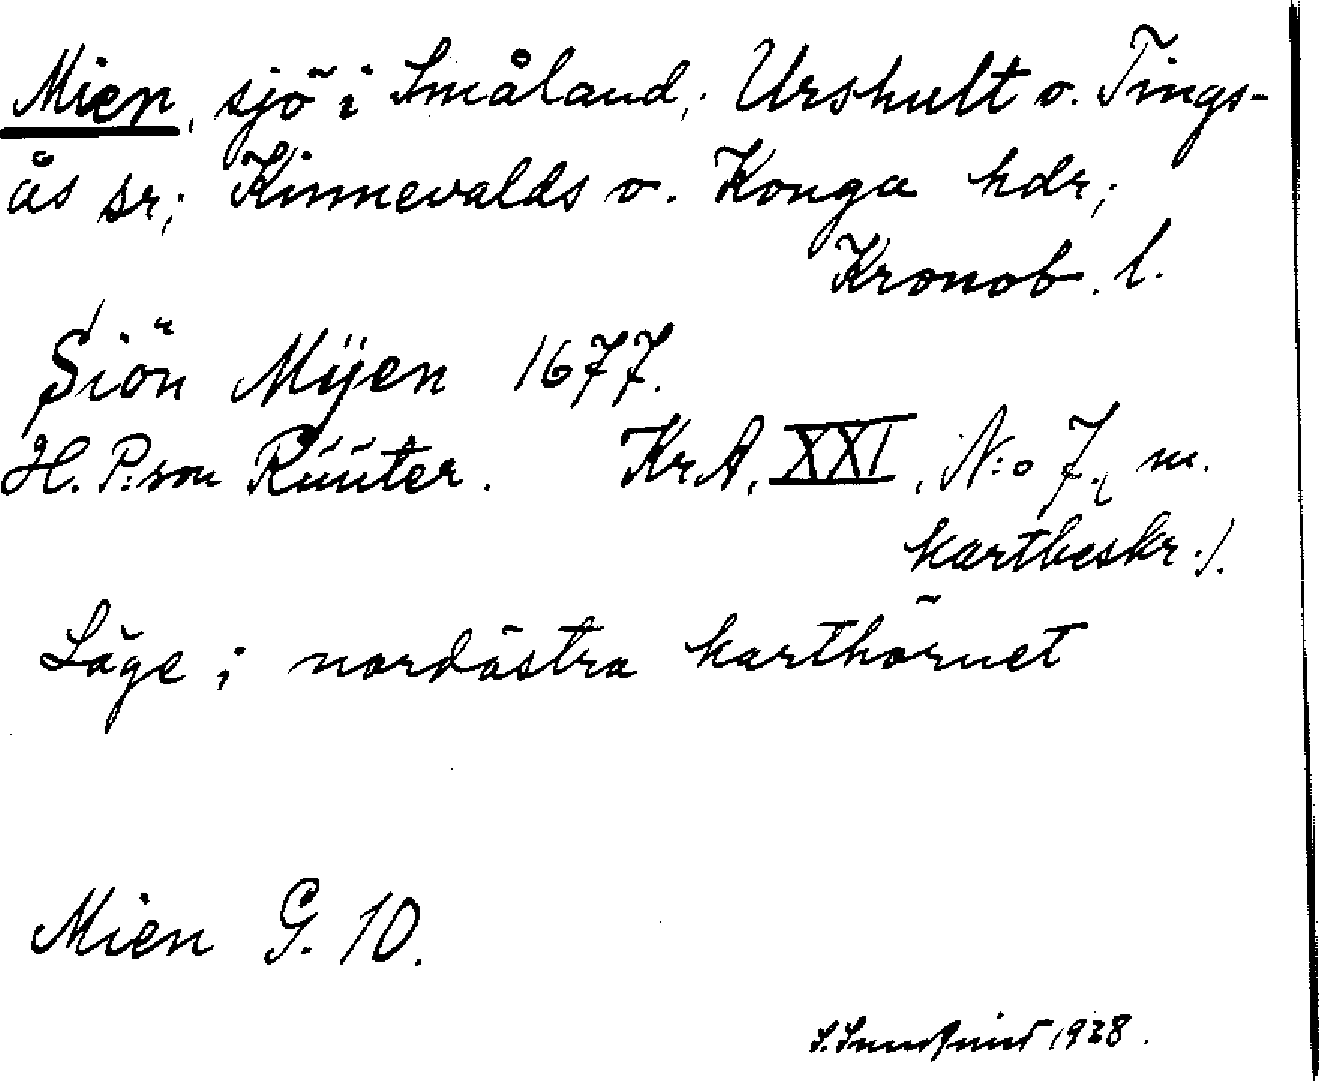 Mien, sjö i Småland; Urshult o. Tings-
ås sr; Kinnevalds o. Konga hdr;
Kronob. l.
Siön Mÿen 1677.
H. P:son Rüüter. Kr A, XXI, N:o 7, m.
kartbeskr./.
Läge i nordöstra karthörnet
Mien G. 10.
1928.